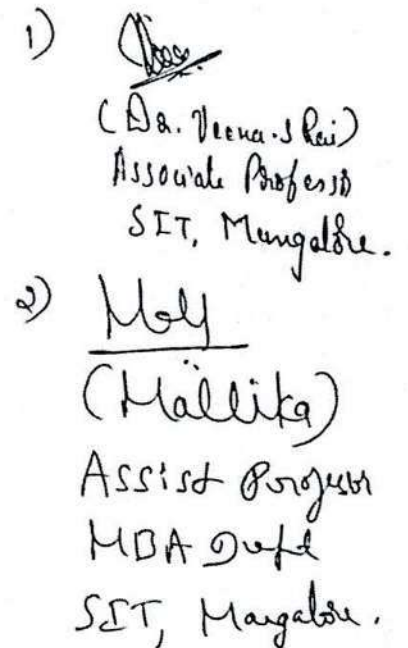 1)
(Dr. Veena.S Rai)
Associate Professor
SIT, Mangalore.
2)
(Mallika)
Assist Professor
MBA Dept
SIT, Mangalore.